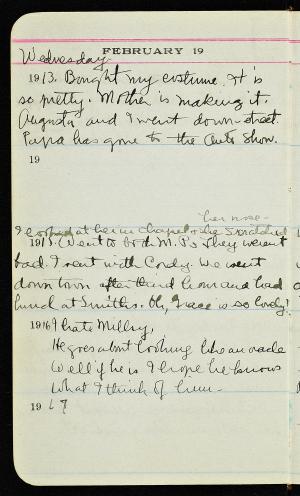 FEBRUARY 19
Wednesday.
1913. Bought my costume. It is
so pretty. Mother is making it.
Augusta and I went down-street.
Papa has gone to the Auto Show.
19
her nose-
I looked at her in chapel & she
1915. Went to both M.P's they weren't
bad. I went with Cordy. We went
down town after third hour and had
lunch at Smith's. Oh, Grace is so lovely!
1916 I hate Millsy,
He goes about looking like an oracle
Well if he is I hope he knows
What I think of him -
1917